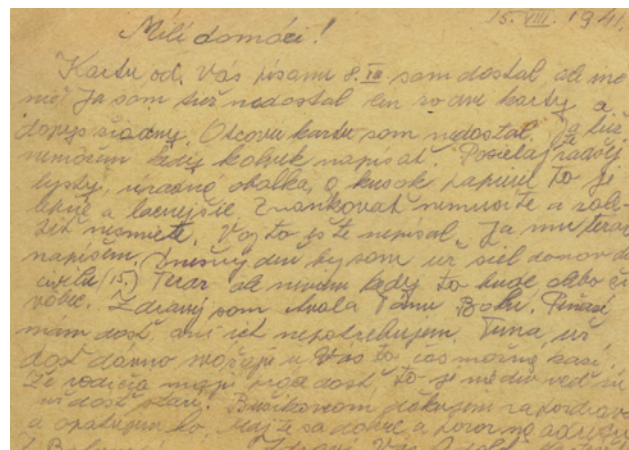 15. VIII. 1941.
Milí domáci!
Kartu od Vás písanú 8. som dostal ale iné
nie. Ja som tiež nedostal len zo dve karty a
dopis žiadny. Otcovu kartu som nedostal. Ja tiež
nemôžem kedy koľvek napísať. Posielaj radšej
lysty, obalka, a kúsok papieru to je
lepšie a lacnejšie známkovať nemusíte a
nesmiete. Vojto ešte nepísal. Ja mu teraz
napíšem. Dnešný deň by som už šiel domov do
civilu (15.) Teraz ale neviem kedy to bude alebo či
vôbec. Zdravý som chvala Pánu Bohu. Peňazí
mám dosť, ani ich nepotrebujem. Tuna už
dosť dávno u Vás to čas možno kazí.
Že rodičia majú dosť to je nie div veď sú
už dosť starý. ďakujem za pozdrav
a opätujem ho. Majte sa dobre a pozor na adresu
Zdraví Vás